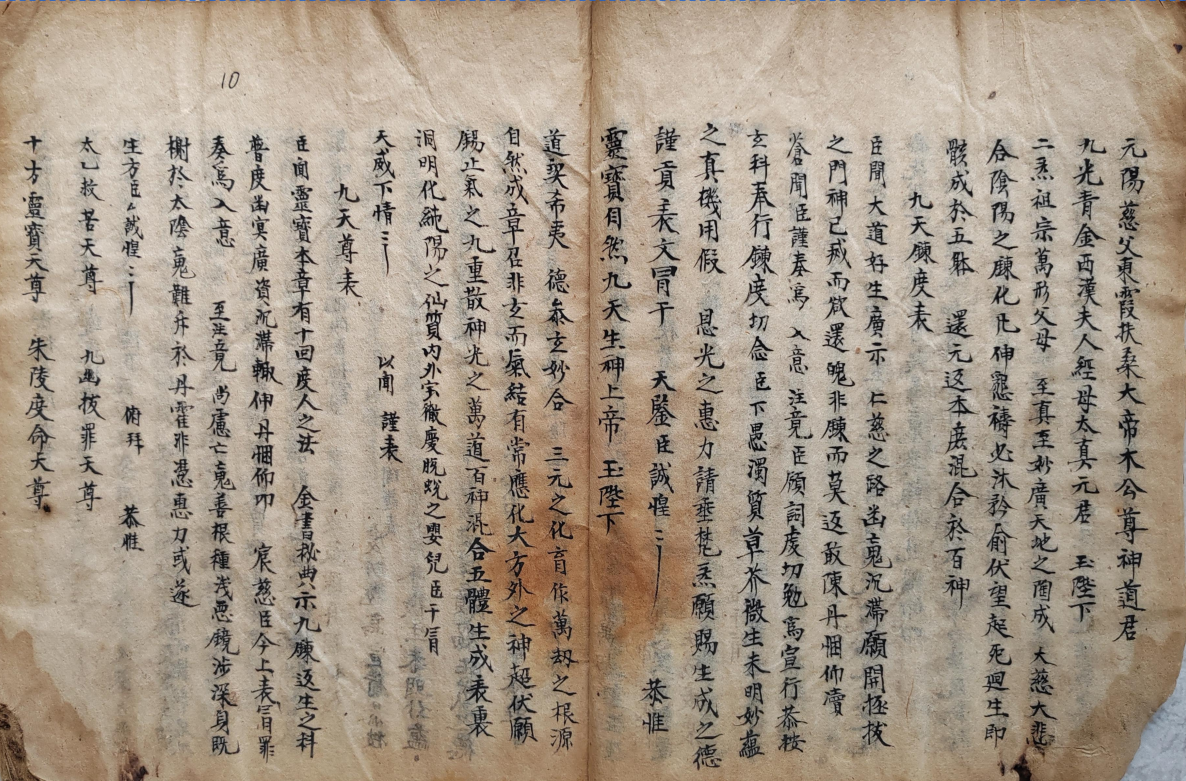 元陽慈父東霞扶桑大帝木公尊神道君
九光青金西漢夫人經母太真元君 玉陛下
二炁祖宗萬形父母 至真至妙廣天地之陶成 大慈大悲
合陰陽之鍊化凡伸懇禱必沐矜俞伏望起死廻生即
骸成於五躰 還元返本庶混合於百神
九天鍊度表
臣聞大道好生廣示 仁慈之路幽䰟沉滯願開拯拔
之門神已戒而欲還魄非鍊而莫返敢陳丹悃仰瀆
蒼聞臣謹奏為 入意 注竟臣願詞虔切勉為宣行恭按
玄科奉行鍊度切念 臣下愚濁質草芥微生未明妙蘊
之真機用假 恩光之惠力請垂梵炁願賜生成之德
謹貢表文冒干 天鑒臣誠惶 恭惟
靈寶自然九天生神上帝 玉陛下
道契希夷 德叅玄妙合 三元之化育作萬刼之根源
自然成章召非玄而氣結有常應化大方外之神趍伏願
錫止氣之九重散神光之萬道百神混合五體生成表裏
洞明化純陽之仙質内外字徹慶脫蛻之嬰兒臣干冒
天威下情 以聞 謹表
九天尊表
臣聞靈寶本章有十回度人之法 金書秘典示九鍊返生之科
普度幽冥廣資沉滯輙伸丹悃仰叩 宸慈臣今上表旨罪
奏為入意 至注竟 尚慮亡䰟善根種浅惡鏡涉深身既
榭於太陰䰟難斥於丹霍非憑惠力或遂
生方臣厶誠惶 俯拜 恭惟
太乙救苦天尊 九幽拔罪天尊
十方靈寶天尊 朱陵度命天尊